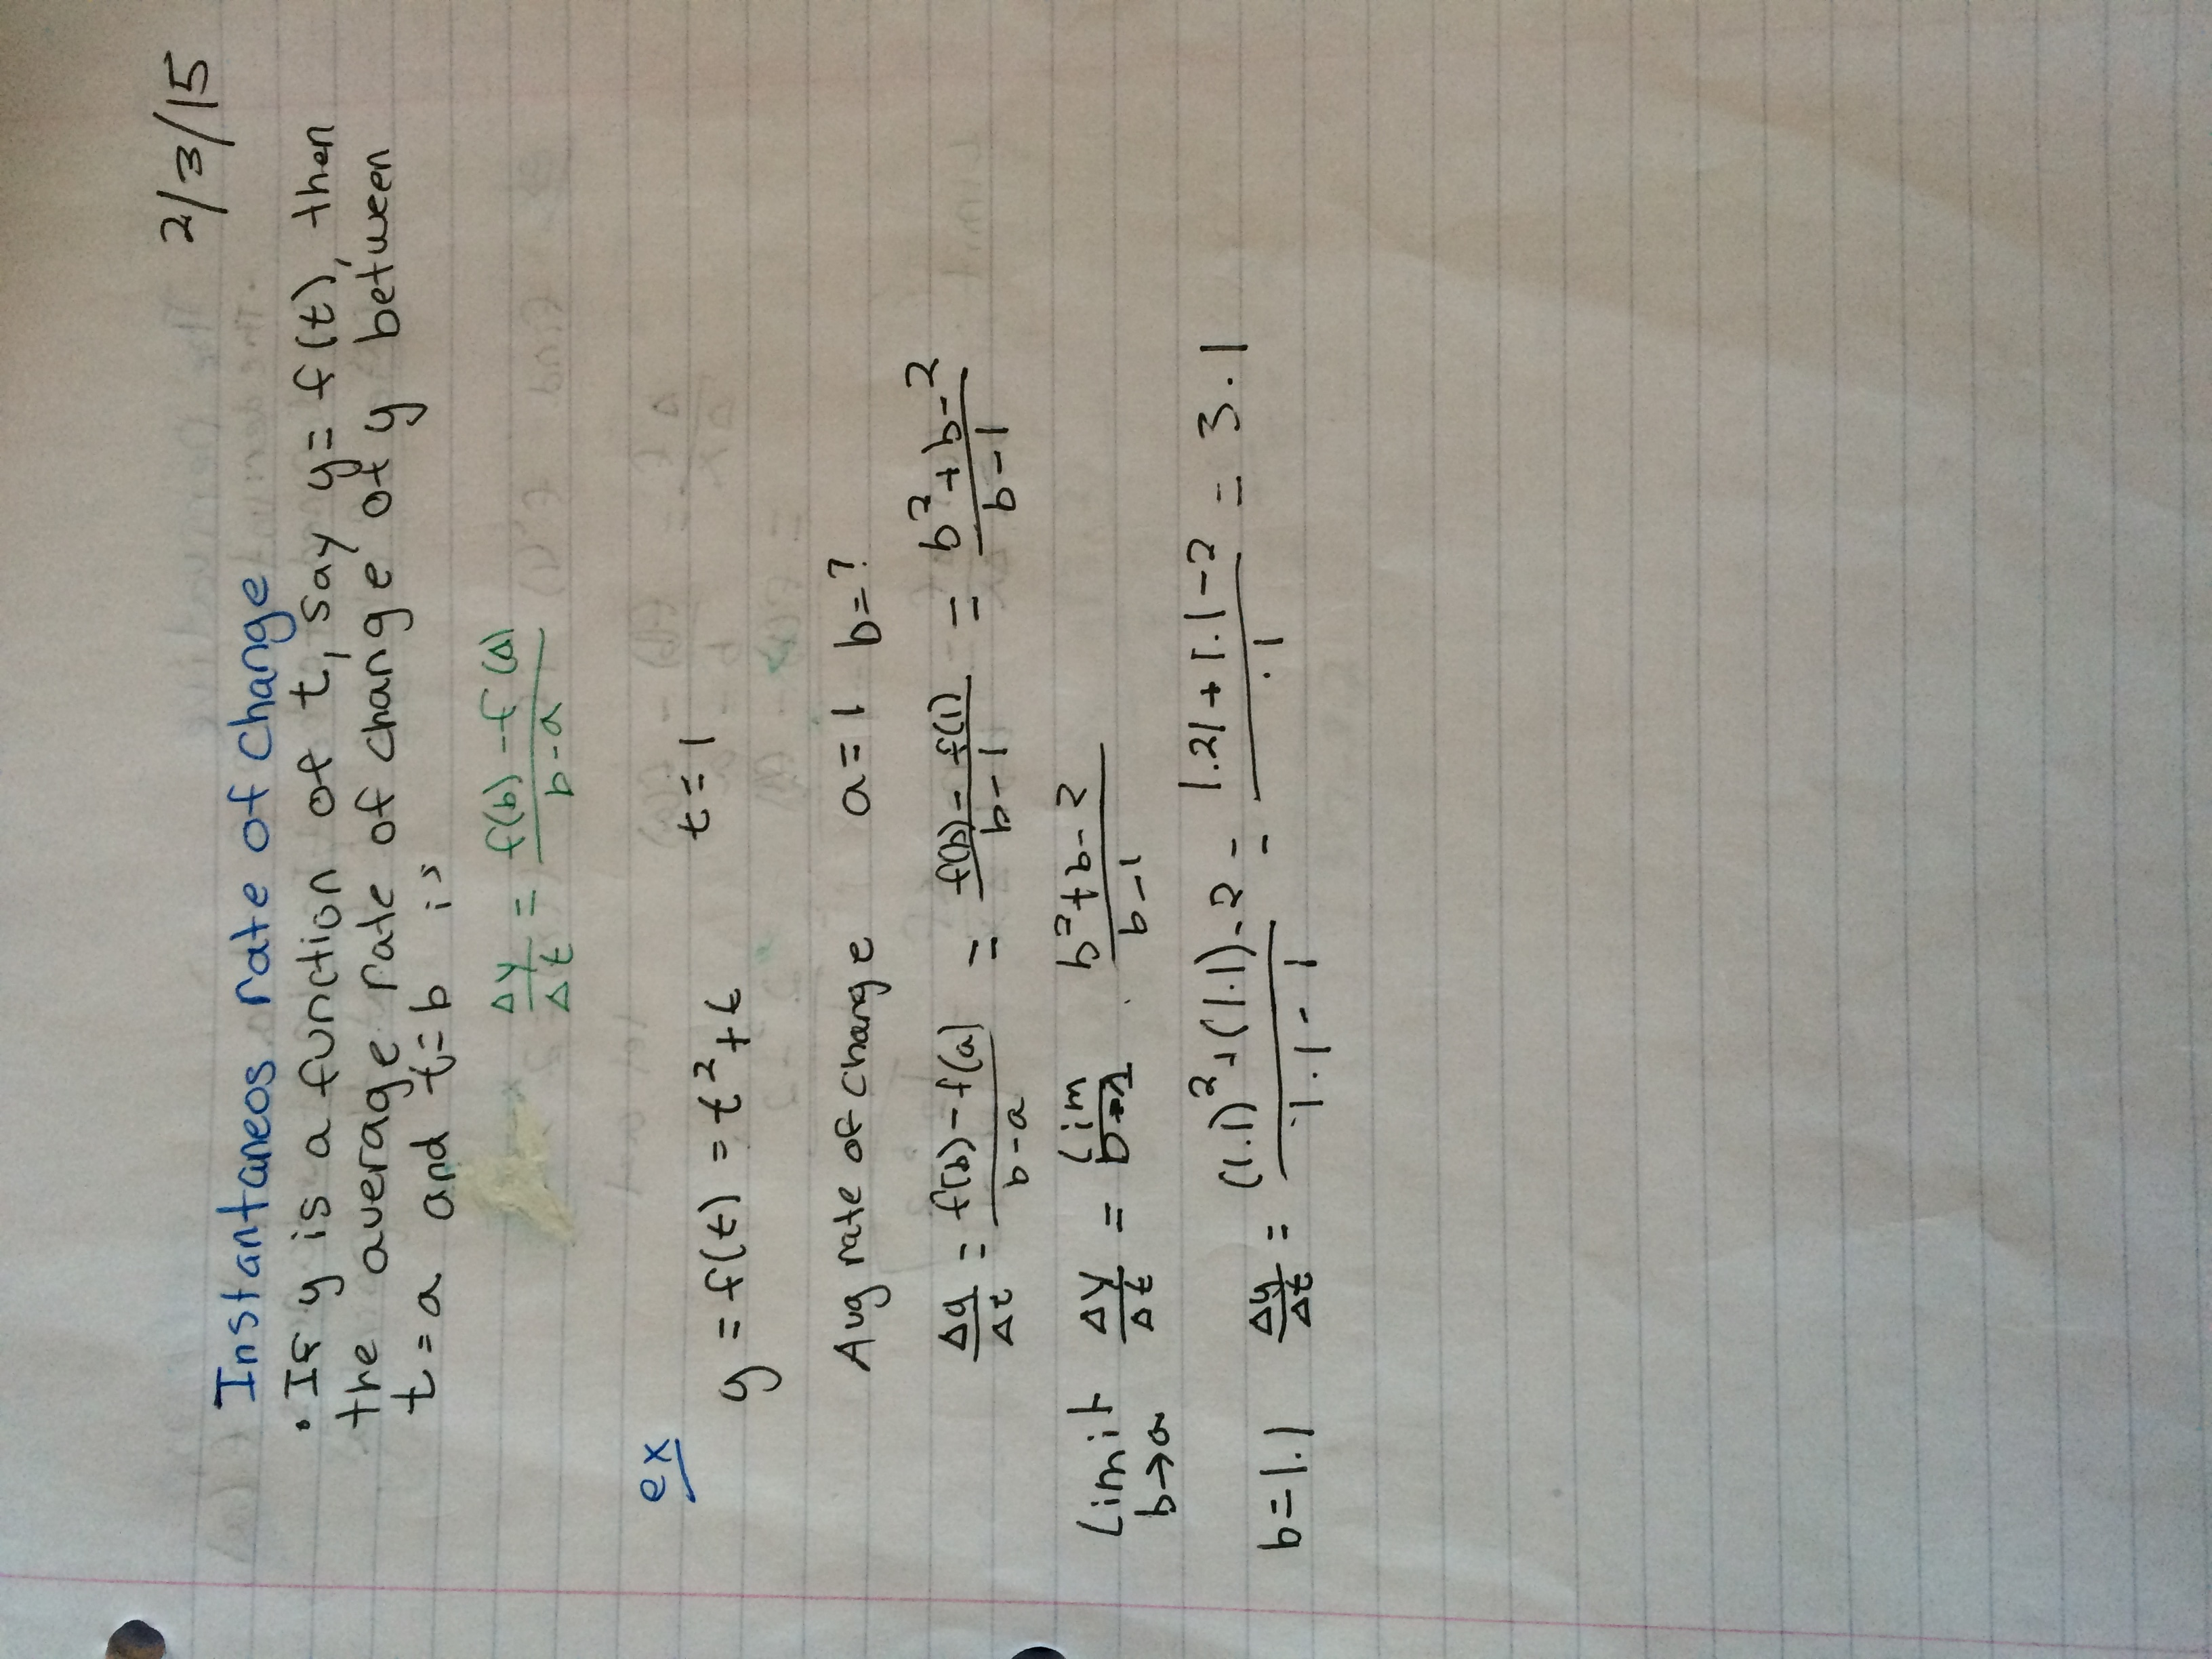 2/3/15
Instantaneos rate of change
• If y is a function of t, say y = f(t), then
the average rate of change of y between
t = a and t = b is
Δy/Δt = f(b) - f(a)/b - a
ex
y = f(t) = t² + t t = 1
Avg rate of change a = 1 b = ?
Δy/Δt = f(b) - f(a)/b - a = f(b) - f(1)/b - 1 = b² + b - 2/b - 1
Limit b→a Δy/Δt = lim b→1 b² + b - 2/b - 1
b = 1.1 Δy/Δt = (1.1)² + (1.1) - 2/1.1 - 1 = 1.21 + 1.1 - 2/.1 = 3.1